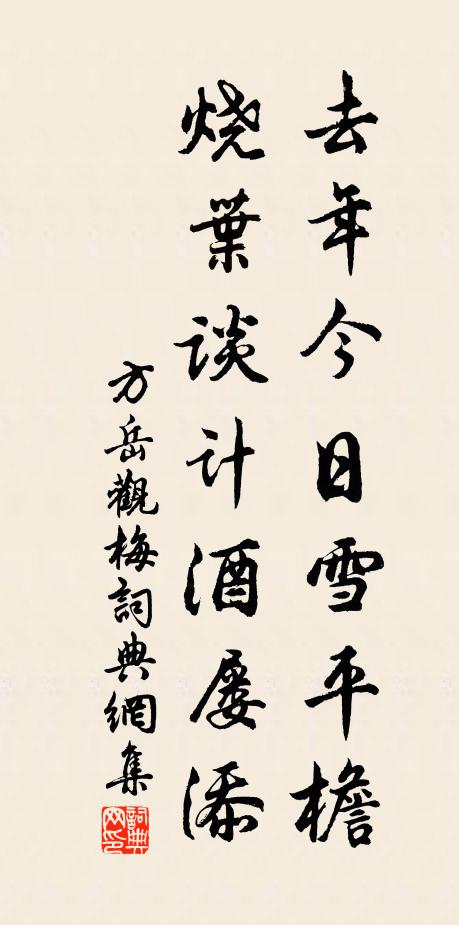 去年今日雪平檐
烧葉谈计酒屡添
方岳觀梅詞典網集
詞典网印